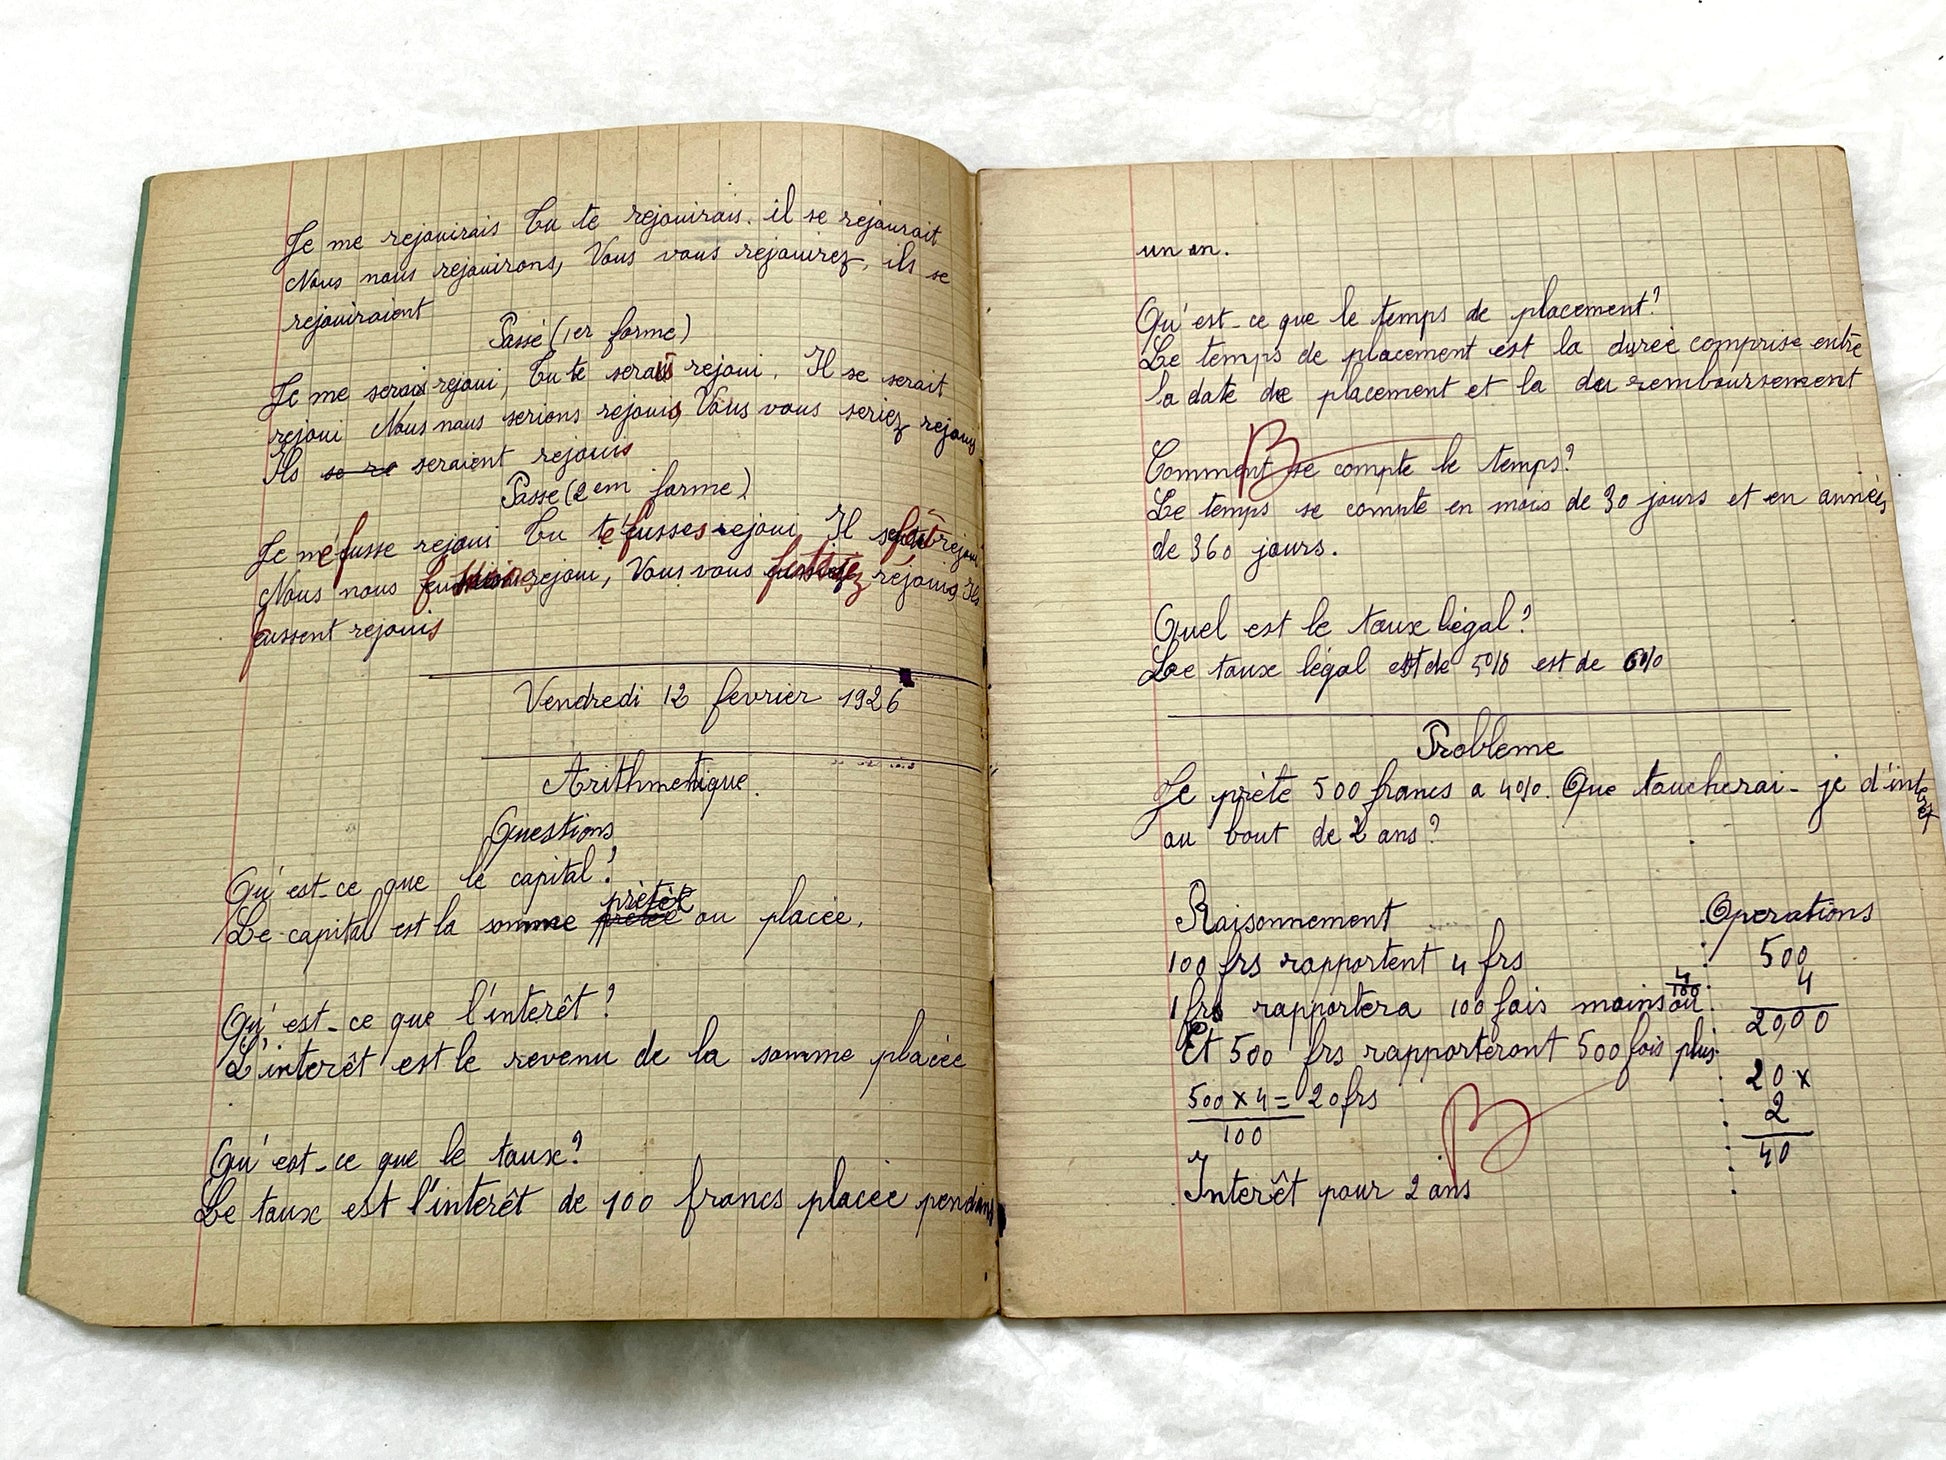 Je me rejouirais Tu te rejouirais. il se rejourait
Nous nous rejouirons, Vous vous rejouirez, ils se
rejouiraient
Passé (1er forme)
Je me serais rejoui, Tu te serais rejoui. Il se serait
rejoui Nous nous serions rejouis, Vous vous seriez rejouis
Ils se re seraient rejouis
Passe (2em forme)
Je me fusse rejoui Tu te fusses rejoui Il se fût rejoui
Nous nous rejoui, Vous vous rejouis Ils
fussent rejouis
Vendredi 12 fevrier 1926
Arithmetique.
Questions
Qu'est-ce que le capital?
Le capital est la somme prêtée ou placée.
Qu'est-ce que l'interêt?
L'interêt est le revenu de la somme placée
Qu'est-ce que le taux?
Le taux est l'interêt de 100 francs placée pendant
un an.
Qu'est-ce que le temps de placement?
Le temps de placement est la durée comprise entre
la date de placement et la du remboursement
B
Comment se compte le temps?
Le temps se compte en mois de 30 jours et en années
de 360 jours.
Quel est le taux légal?
Le taux légal est de 5% est de 6%
Probleme
Je prête 500 francs a 4%. Que toucherai-je d'interet
au bout de 2 ans?
Raisonnement
100 frs rapportent 4 frs
1 frs rapportera 100 fois moins ou 4/100
Et 500 frs rapporteront 500 fois plus
500 x 4 = 20 frs
100
B
Interêt pour 2 ans
Operations
500
4
20,00
20 x
2
40